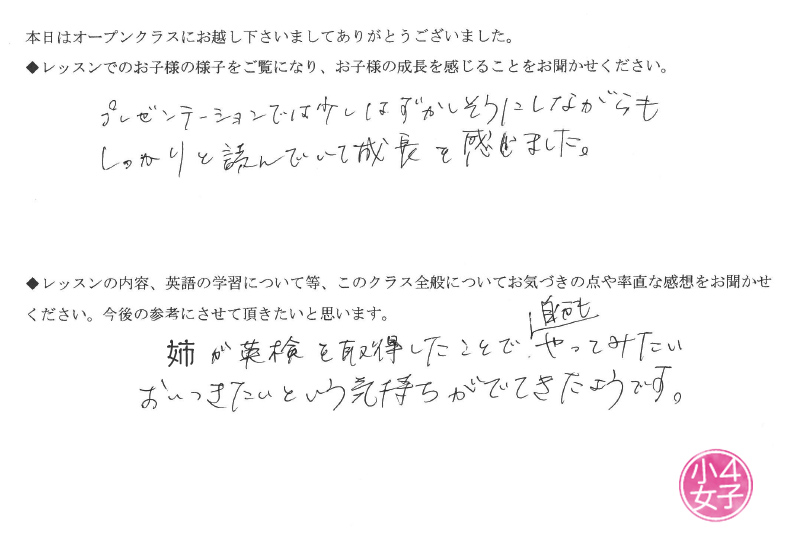 本日はオープンクラスにお越し下さいましてありがとうございました。
◆レッスンでのお子様の様子をご覧になり、お子様の成長を感じることをお聞かせください。
プレゼンテーションでは少しはずかしそうにしながらも
しっかりと読んでいて成長を感じました。
◆レッスンの内容、英語の学習について等、このクラス全般についてお気づきの点や率直な感想をお聞かせ
ください。今後の参考にさせて頂きたいと思います。
自分も
姉が英検を取得したことで、やってみたい
おいつきたいという気持ちがでてきたようです。
小4
女子